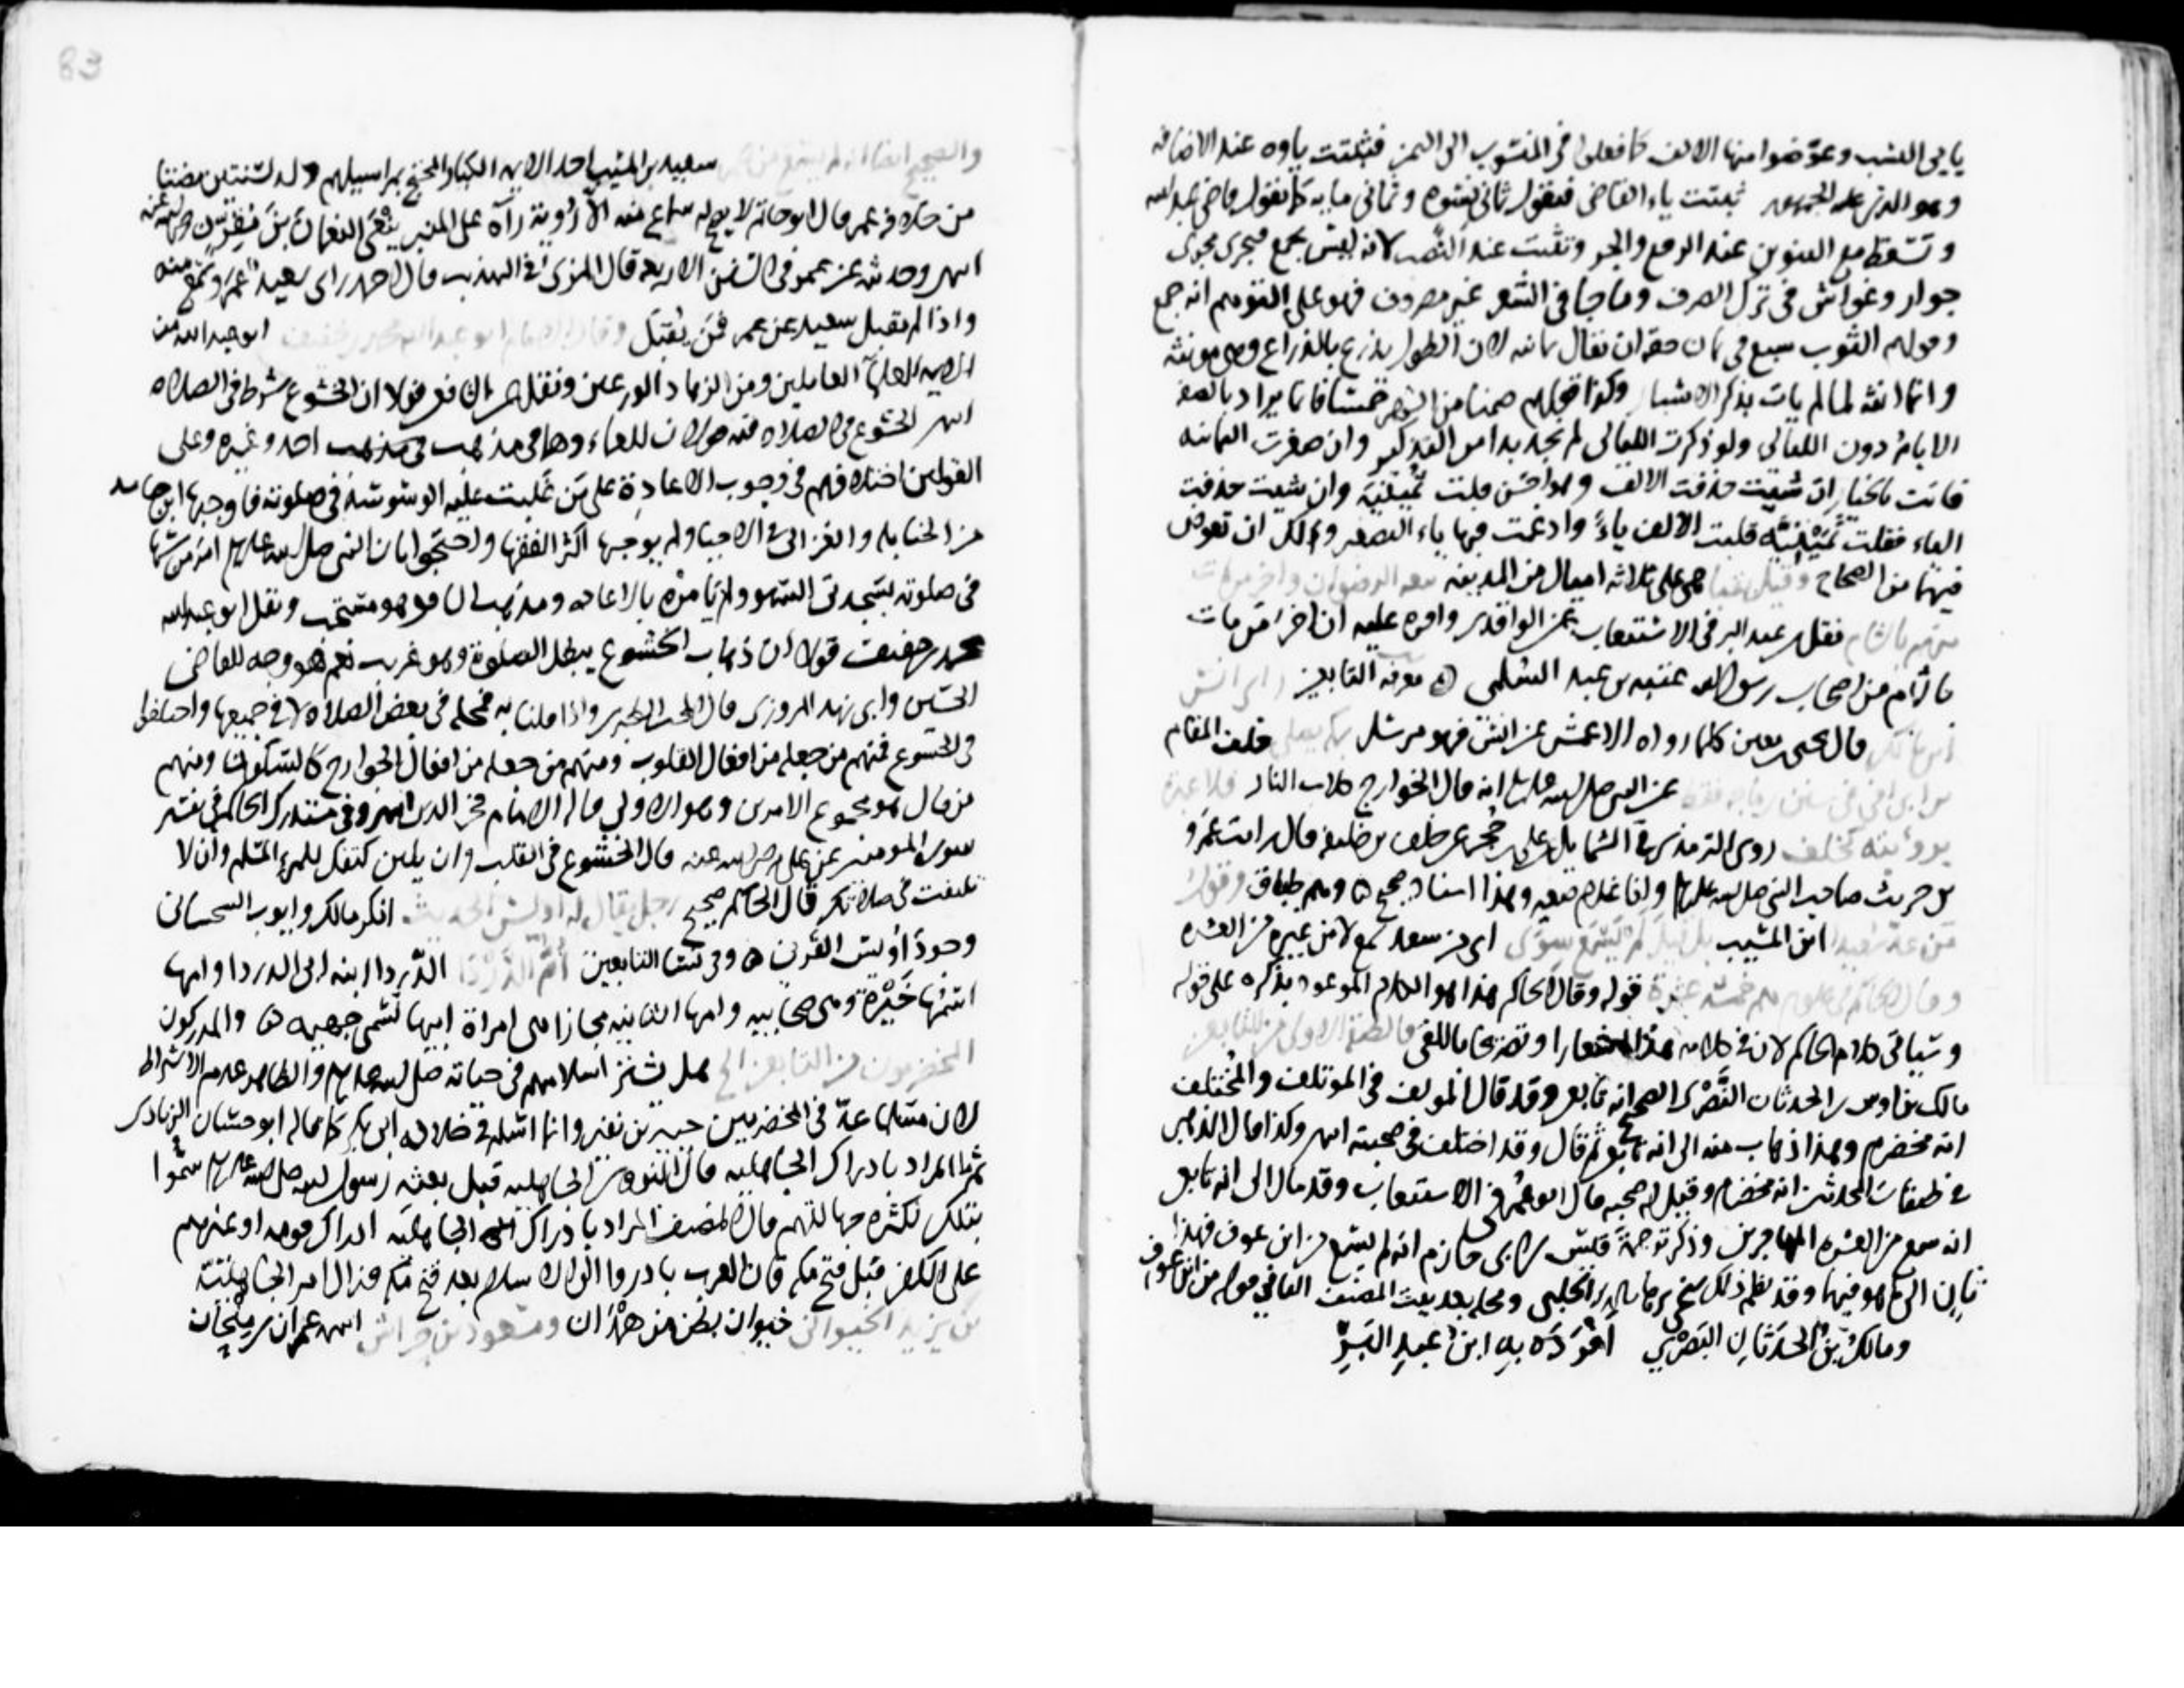 يايى النسب وعوضوا منها الالف كما فعلوا فى المنسوب الى اليمن فثبتت ياوه عند الاضافه
ثبتت ياء القاضى فتقول ثمانى نسوه وثمانى مايه كما تقول قاضى عبد الله
وتسقط مع التنوين عند الرفع والجر وتثبت عند النصب لانه ليس بجمع فيجرى مجرى
جوار وغواش فى ترك الصرف وما جا فى الشعر غير مصروف فهو على التوهم انه جمع
وقولهم الثوب سبع فى ثمان حقه ان يقال ثمانيه لان الطول يذرع بالذراع وهى مونثه
وانما انثه لما لم يات بذكر الاشبار وكذا قولهم صمنا من الشهر خمسا فانما يراد بالصوم
الايام دون الليالى ولو ذكرت الليالى لم نجد بدا من التذكير وان صغرت الثمانيه
فانت بالخيار ان شيت حذفت الالف وهو احسن قلت ثمينية وان شيت حذفت
الياء فقلت ثمينيه قلبت الالف ياءً وادغمت فيها ياء التصغير ولك ان تعوض
فيهما من الصحاح وقيل بقبا هى على ثلاثه اميال من المدينه بيعه الرضوان واخر من مات
منهم بالشام نقل بن عبد البر فى الاستيعاب عن الواقدى واقره عليه ان اخر من مات
بالشام من اصحاب رسول الله عتبه بن عبد السلمى ه معرفه التابعين راى انس
بن مالك قال يحيى بن معين كلما رواه الاعمش عن انس فهو مرسل بمكه يصلى خلف المقام
بن ابى اوفى فى سنن بن ماجه فقط عن النبى صلى الله عليه وسلم انه قال الخوارج كلاب النار فلا عبره
بروايته كخلف روى الترمذى فى الشمايل عن على بن حجر عن خلف بن خليفه قال رايت عمرو
بن حريث صاحب النبى صلى الله عليه وسلم وانا غلام صغير وهذا اسناد صحيح ه وهم طباق وقول
من عد سعيد ابن المسيب بل قيل لم يسمع سوى اى من سعد نعم لا من غيره من العشره
وقال الحاكم فى علومه هم خمس عشرة قوله وقال الحاكم هذا هو الكلام الموعود بذكره على قوله
وسياتى كلام الحاكم لان فى كلامه هذا اشعارا وتصريحا باللقى فالطبقه الاولى من التابعين
مالك بن اوس بن الحدثان النصرى الصحيح انه تابع وقد قال المولف فى الموتلف والمختلف
انه مخضرم وهذا ذهاب منه الى انه تابع ثم قال وقد اختلف فى صحبته انتهى وكذا قال الذهبى
فى طبقات المحدثين انه مخضرم وقيل له صحبه قال ابو عمر فى الاستيعاب وقد مال الى انه تابع
انه سمع من العشره المهاجرين وذكر ترجمة قيس بن ابى حازم انه لم يسمع من ابن عوف فهذا
ثانٍ الى ما هو فيها وقد نظم ذلك شيخى برهان الدين الحلبى ومحله بعد بيت المصنف الثانى قوله من ابن عوف
ومالك بن الحدثان النصرى افرده به ابن عبد البر
والصحيح ايضا انه لم يسمع من عمر سعيد بن المسيب احد الايمه الكبار المحتج بمراسيلهم ولد لسنتين مضتا
من خلافه عمر قال ابو حاتم لا يصح له سماع منه الا رؤية رآه على المنبر ينعى النعمان بن مقرن رضى الله عنه
انتهى وحديثه عن عمر فى السنن الاربعه قال المزى فى التهذيب قال احمد راى سعيد عمر وسمع منه
واذا لم نقبل سعيد عن عمر فمن يقبل وقال الامام ابو عبد الله محمد بن خفيف ابو عبد الله من
الايمه العلماء العاملين ومن الزهاد الورعين ونقل عن الشافعى قولا ان الخشوع شرط فى الصلاه
انتهى الخشوع فى الصلاه فيه قولان للعلماء وهما فى مذهب احمد وغيره وعلى
القولين اختلافهم فى وجوب الاعادة على من غلبت عليه الوسوسة فى صلوته فاوجبها ابن حامد
من الحنابله والغزالى فى الاحيا ولم يوجبها اكثر الفقها واحتجوا بان النبى صلى الله عليه وسلم امر من سها
فى صلوته بسجدتى السهو ولم يامره بالاعاده ومذهب الشافعى هو مستحب ونقل ابو عبد الله
محمد بن خفيف قولا ان ذهاب الخشوع يبطل الصلوة وهو غريب نعم هو وجه للقاضى
الحسين وابى زيد المروزى قال المحب الطبرى واذا قلنا به فمحله فى بعض الصلاه لا فى جميعها واختلفوا
فى الخشوع فمنهم من جعله من افعال القلوب ومنهم من جعله من افعال الجوارح كالسكون ومنهم
من قال هو مجموع الامرين وهو الاولى قاله الامام فخر الدين انتهى وفى مستدرك الحاكم فى تفسير
سوره المومنين عن على رضى الله عنه قال الخشوع فى القلب وان يلين كتفك للمرء المسلم وان لا
تلتفت فى صلاتك قال الحاكم صحيح رجل يقال له اويس الحديث انكر مالك وايوب السختيانى
وجود اويس القرنى ه وفى نسا التابعين ام الدردا الدردا ابنه ابى الدردا وامها
اسمها خيرة وهى صحابيه وامها الثانيه مجازا هى امراة ابيها تسمى جهيمه ه والمدركون
المخضرمون من التابعين الخ هل يشترط اسلامهم فى حياته صلى الله عليه وسلم والظاهر عدم الاشتراط
لان مسلما عد فى المخضرمين جبير بن نفير وانما اسلم فى خلافه ابى بكر كما قاله ابو حسان الزيادى
ثم المراد بادراك الجاهليه قال النووى الجاهليه قبل بعثه رسول الله صلى الله عليه وسلم سموا
بذلك لكثره جهالتهم قال المصنف المراد بادراك الجاهليه ادراك قومه او غيرهم
على الكفر قبل فتح مكه فان العرب بادروا الى الاسلام بعد فتح مكه فزال امر الجاهليته
بن يزيد الخيوانى خيوان بطن من همدان ومسعود بن حراش انتهى عمران بن ملحان